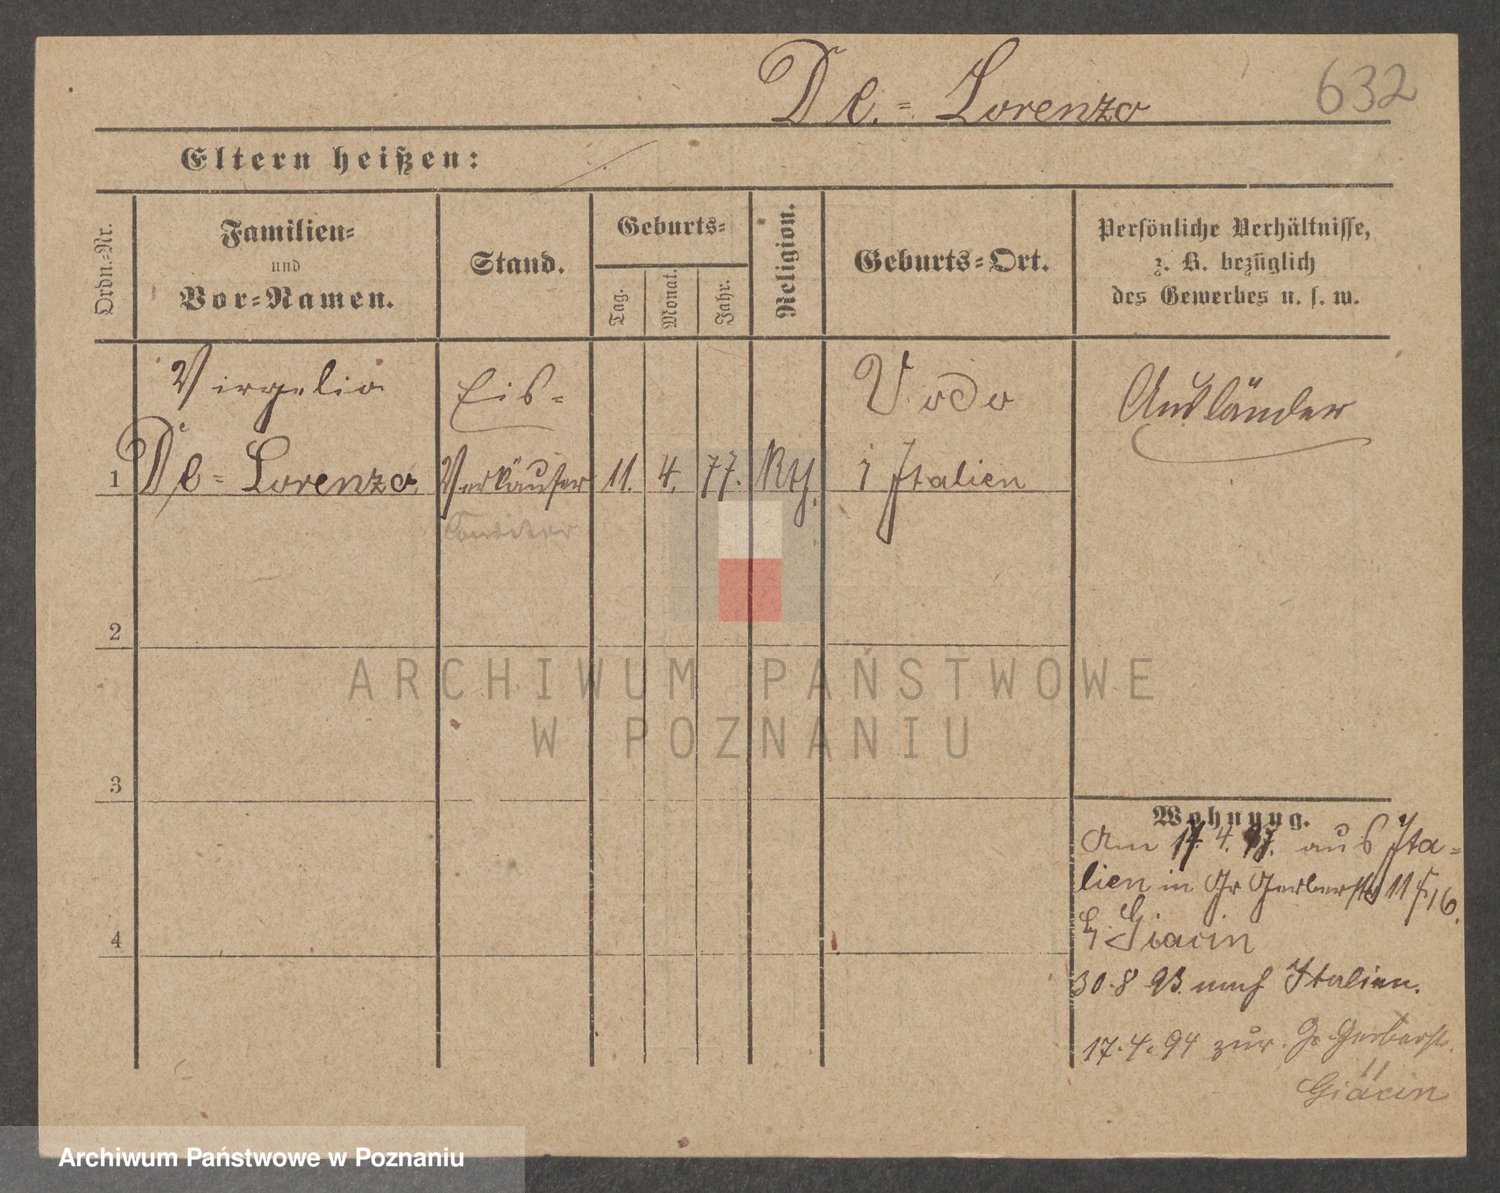 De.= Lorenzo
632
Eltern heißen:
Ordn.-Nr.
Familien=
und
Vor=Namen.
Stand.
Geburts=
Tag.
Monat.
Jahr.
Religion.
Geburts=Ort.
Persönliche Verhältnisse,
z. B. bezüglich
des Gewerbes u. s. w.
Virgelio
Eis=
Vodo
Ausländer
1 De= Lorenzo Verkäufer 11. 4. 77. Kth. i Italien
Conditor
2
ARCHIWUM PAŃSTWOWE
W POZNANIU
3
Wohnung.
Am 17. 4. aus Ita=
lien in Gr Gerberstr 11
4
Giacin
30.8 93. nach Italien.
17.4.94 zur. Gr Gerberstr.
11
Giacin
Archiwum Państwowe w Poznaniu